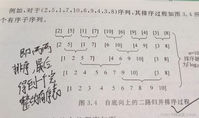 例如,对于(2,5,1,7,10,6,9,4,3,8)序列,其排序过程如图3.4所
个有序子序列。
[2] [5] [1] [7] [10] [6] [9] [4] [3] [8]
[2 5] [1 7] [6 10] [4 9] [3 8]
[1 2 5 7] [4 6 9 10] [3 8]
[1 2 4 5 6 7 9 10] [3 8]
[1 2 3 4 5 6 7 8 9 10]
即两两
排序,最后
得到一个完
整的有序序列
图 3.4 自底向上的二路归并排序过程